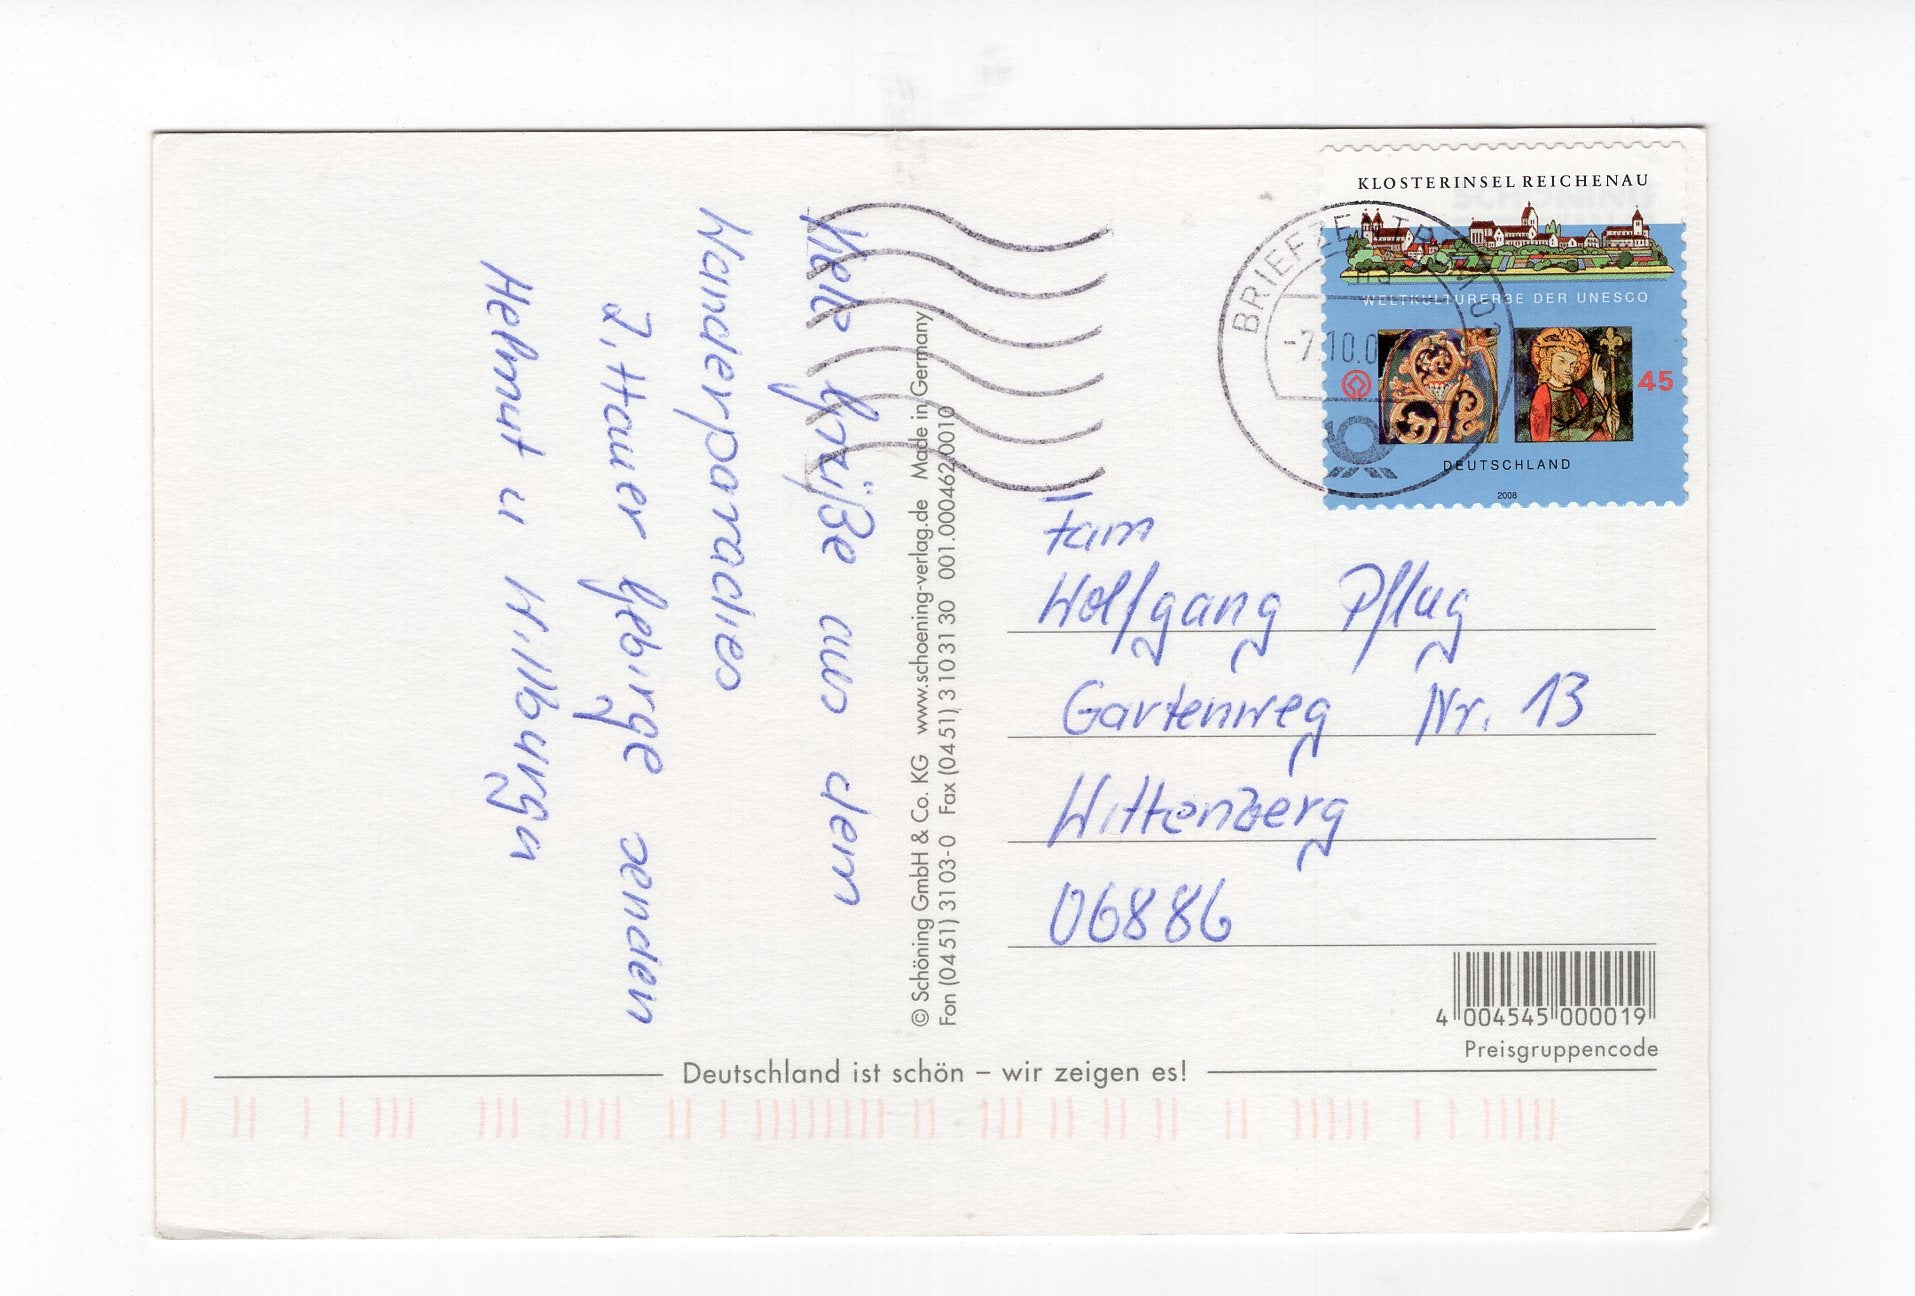 Viele Grüße aus dem
Wanderparadies
Zittauer Gebirge senden
Helmut u Hilburga
© Schöning GmbH & Co. KG www.schoening-verlag.de Made in Germany
Fon (0451) 31 03-0 Fax (0451) 3 10 31 30 001.000462.0010
KLOSTERINSEL REICHENAU
WELTKULTURERBE DER UNESCO
45
DEUTSCHLAND
2008
BRIEFZENTRUM 0
-7.10.0
Fam
Wolfgang Pflug
Gartenweg Nr. 13
Wittenberg
06886
4 004545 000019
Preisgruppencode
Deutschland ist schön – wir zeigen es!